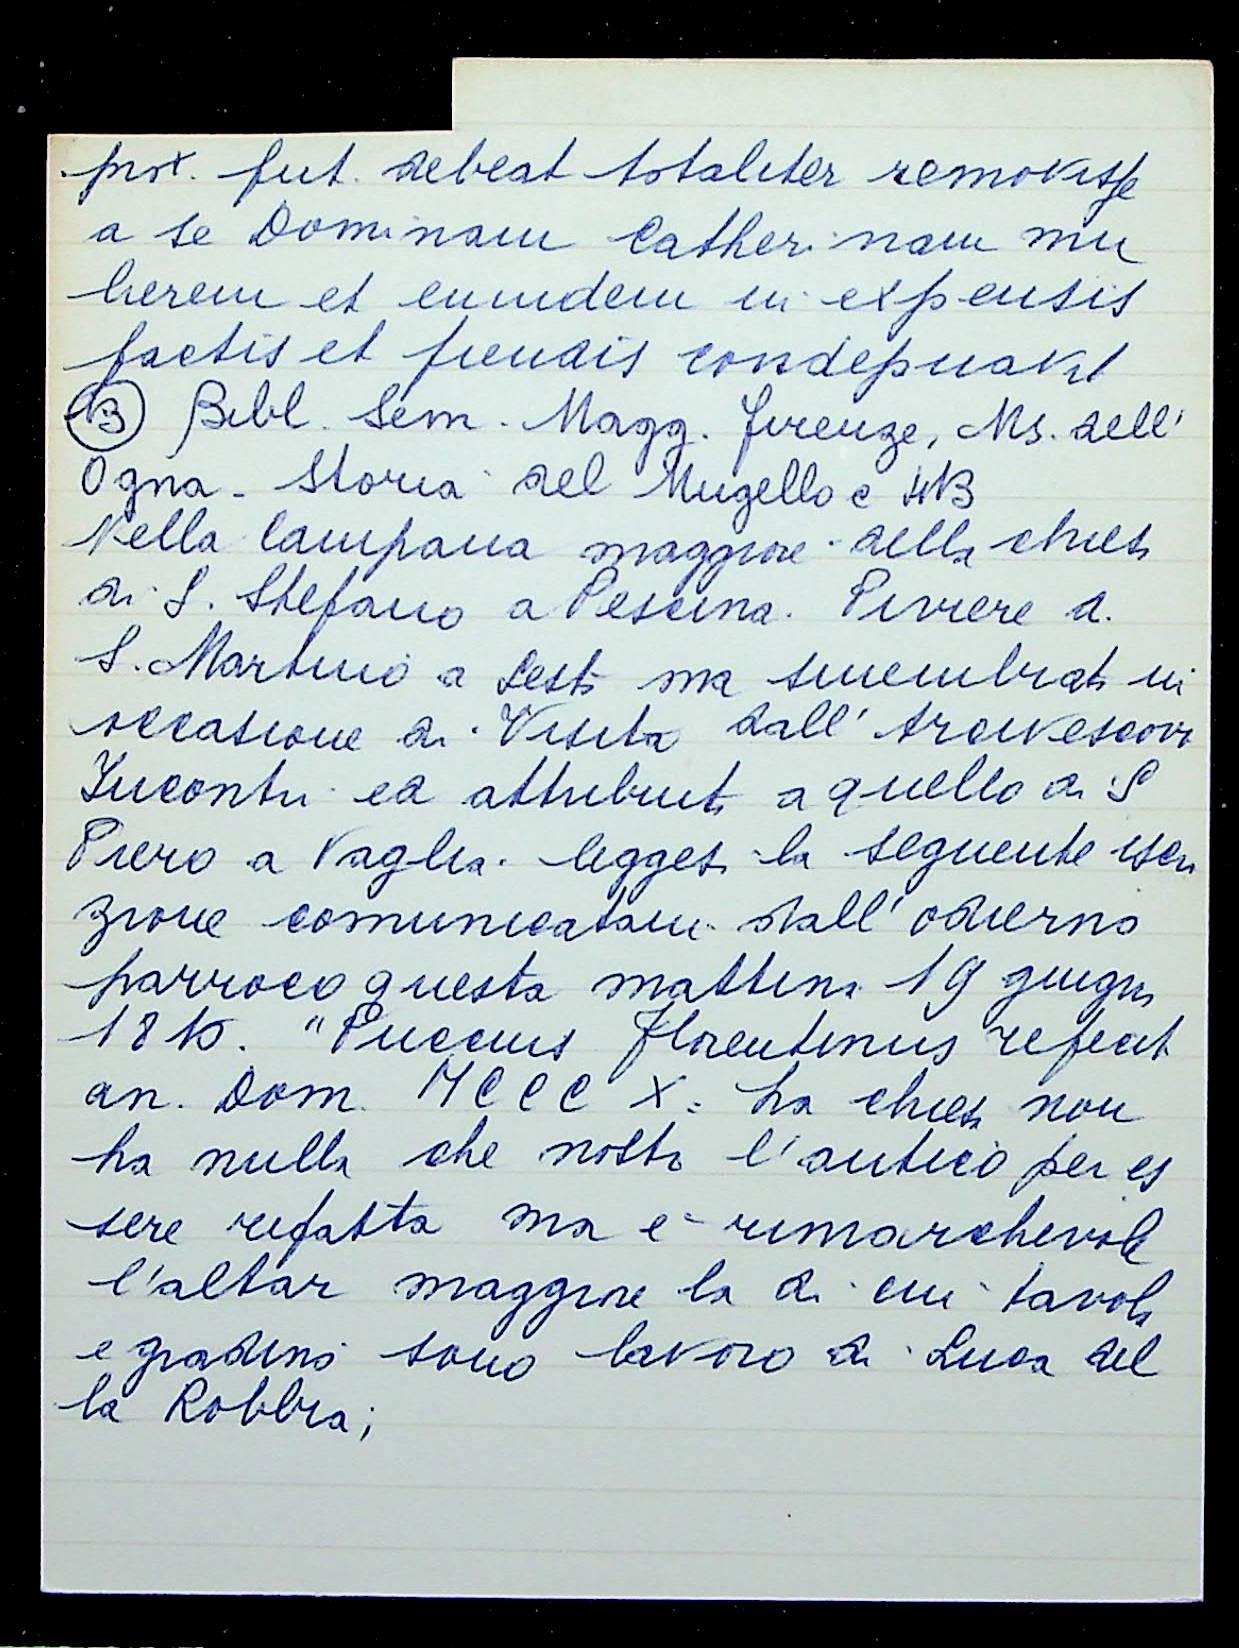 prox. fut. debeat totaliter removisse
a se Dominam Catherinam mu
lierem et eumdem in expensis
factis et fiendis condepnavit
13 Bibl. Sem. Magg. Firenze, Ms. dell'
Ogna - Storia del Mugello c
Nella campana maggiore della chiesa
di S. Stefano a Pescina. Piviere di
S. Martino a Sesto ma smembrato in
occasione di Visita dall' Arcivescovo
Incontri ed attribuito a quello di S
Piero a Vaglia. leggesi la seguente iscri
zione comunicatami dall' odierno
parroco questa mattina 19 giugno
"Puccius Florentinus refecit
an. Dom. MCCC X = La chiesa non
ha nulla che mostri l'antico per es
sere rifatta ma e' rimarchevole
l'altar maggiore la di cui tavola
e gradino sono lavoro di Luca del
la Robbia;